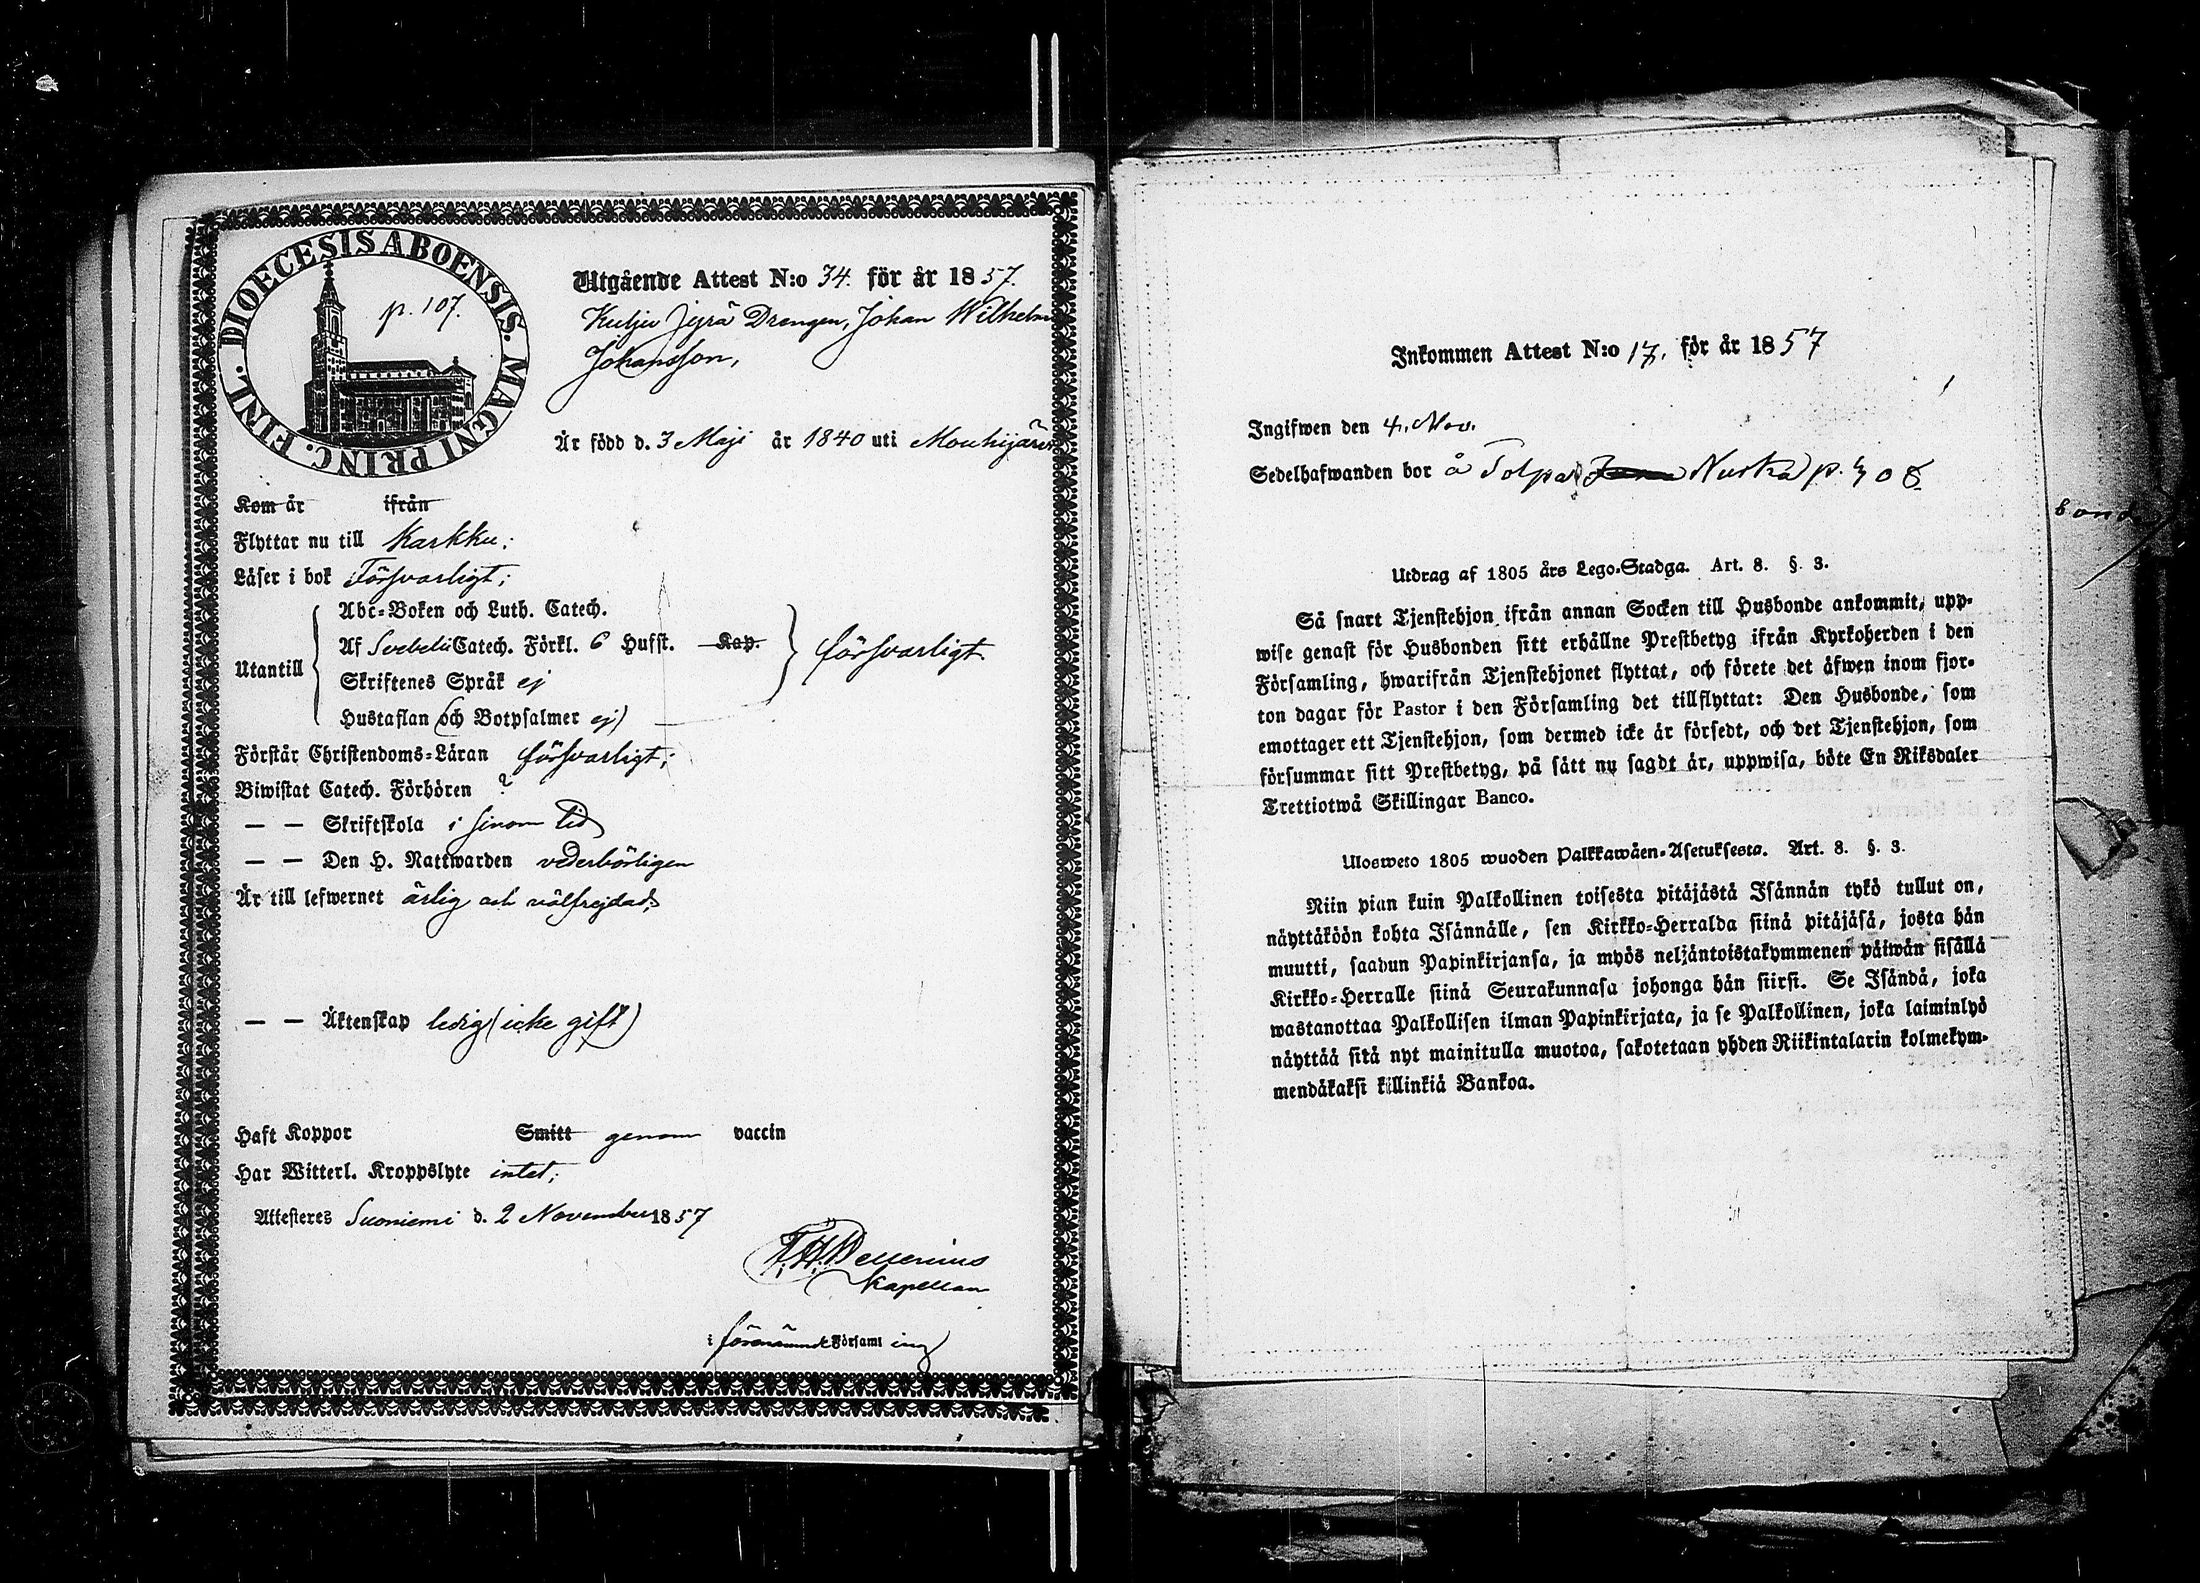 DIOECESIS ABOENSIS. MAGNI PRINC. FINL.
p. 107.
Utgående Attest N:o 34. för år 1857.
Kulju Jyrä Drengen, Johan Wilhelm
Johansson,
Är född d. 3 Maji år 1840 uti Mouhijärvi
Kom år ifrån
Flyttar nu till Karkku;
Läser i bok Försvarligt;
Utantill
Abc-Boken och Luth. Catech.
Af Svebelii Catech. Förkl. 6 Hufst. Kap.
försvarligt.
Skriftenes Språk ej
Hustaflan (och Botpsalmer ej)
Förstår Christendoms-Läran försvarligt;
Biwistat Catech. Förhören ?
— — Skriftskola i sinom tid
— — Den H. Nattwarden vederbörligen
Är till lefwernet ärlig och välfrejdad;
— — Äktenskap ledig (icke gift)
Haft Koppor Smitt genom vaccin
Har Witterl. Kroppslyte intet;
Attesteres Suoniemi d. 2 November 1857
Kapellan
i förenämnde Församling
Inkommen Attest N:o 17. för år 1857
Ingifwen den 4. Nov.
Sedelhafwanden bor å Tolpa Nuska p. 408
Utdrag af 1805 års Lego-Stadga. Art. 8. §. 3.
Så snart Tjenstehjon ifrån annan Socken till Husbonde ankommit, upp-
wise genast för Husbonden sitt erhållne Prestbetyg ifrån Kyrkoherden i den
Församling, hwarifrån Tjenstehjonet flyttat, och förete det äfwen inom fjor-
ton dagar för Pastor i den Församling det tillflyttat: Den Husbonde, som
emottager ett Tjenstehjon, som dermed icke är försedt, och det Tjenstehjon, som
försummar sitt Prestbetyg, på sätt nu sagdt är, uppwisa, böte En Riksdaler
Trettiotwå Skillingar Banco.
Ulosweto 1805 wuoden Palkkawäen-Asetuksesta. Art. 8. §. 3.
Niin pian kuin Palkollinen toisesta pitäjästä Isännän tykö tullut on,
näyttäköön kohta Isännälle, sen Kirkko-Herralda siinä pitäjäsä, josta hän
muutti, saadun Papinkirjansa, ja myös neljäntoistakymmenen päiwän sisällä
Kirkko-Herralle siinä Seurakunnasa johonga hän siirsi. Se Isändä, joka
wastanottaa Palkollisen ilman Papinkirjata, ja se Palkollinen, joka laiminlyö
näyttää sitä nyt mainitulla muotoa, sakotetaan yhden Riikintalarin kolmekym-
mendäkaksi killinkiä Bankoa.